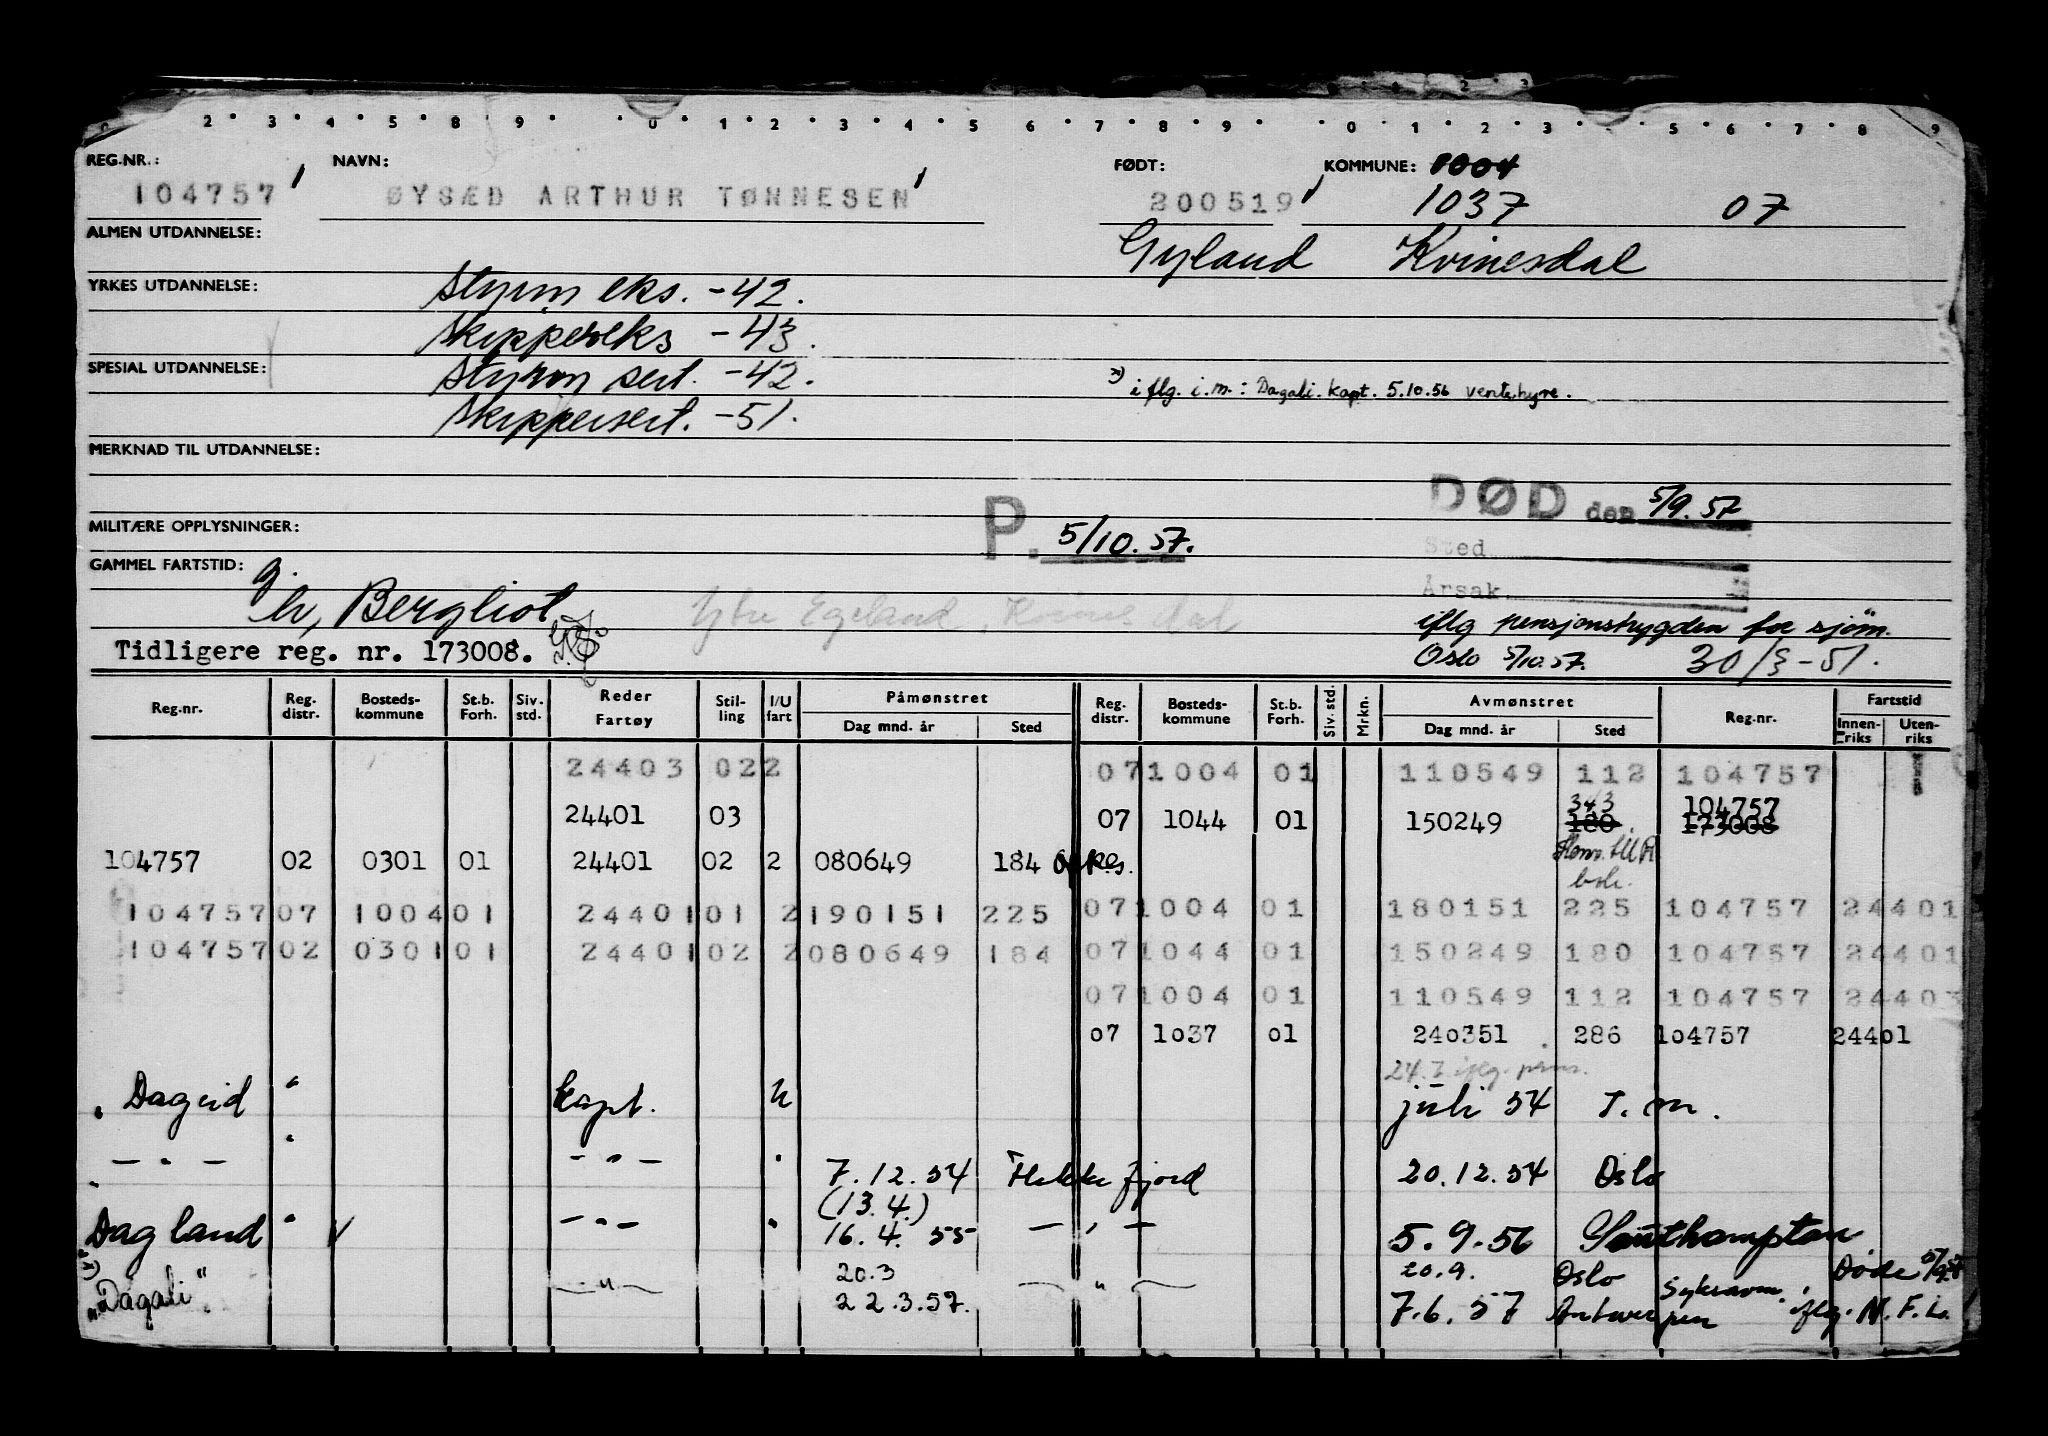 2 3 4 5 8 9 0 1 2 3 4 5 6 7 8 9 0 1 2 3 5 6 7 8 9
REG.NR.: NAVN: FØDT: KOMMUNE: 1004
104757 ØYSÆD ARTHUR TØNNESEN 200519 1037 07
ALMEN UTDANNELSE: Gyland Kvinesdal
YRKES UTDANNELSE: Styrm eks. -42.
Skippereks -43.
SPESIAL UTDANNELSE: Styrm sert. -42.
x) iflg. i.m.: Dagali. kapt. 5.10.56 ventehyre.
Skippersert. -51.
MERKNAD TIL UTDANNELSE:
DØD den 5/9.57
MILITÆRE OPPLYSNINGER: P. 5/10.57.
Sted
GAMMEL FARTSTID: g.
Årsak
h, Bergliot Ytre Egeland, Kvinesdal
iflg pensjonstrygden for sjøm.
Tidligere reg. nr. 173008. Oslo 5/10.57. 30/3-51.
Reg.nr. Reg. distr. Bosteds-kommune St.b. Forh. Siv. std. Reder Fartøy Stil-ling I/U fart Påmønstret Dag mnd. år Sted Reg. distr. Bosteds-kommune St.b. Forh. Siv. std. Mrkn. Avmønstret Dag mnd. år Sted Reg.nr. Fartstid Innen-riks Uten-riks
24403 022 07 1004 01 110549 112 104757
343 104757
24401 03 07 1044 01 150249 180 173008
104757 02 0301 01 24401 02 2 080649 184
104757 07 1004 01 24401 01 2 190151 225 07 1004 01 180151 225 104757 24401
104757 02 0301 01 24401 02 2 080649 184 07 1044 01 150249 180 104757 24401
07 1004 01 110549 112 104757 24403
07 1037 01 240351 286 104757 24401
Dageid " kapt. u juli 54 T. m.
— " — " — " — 7.12.54 Hekkfjord 20.12.54 Oslo
(13.4.)
Dagland " — " — " 16.4.55 — " — 5.9.56 Southampton
x) 20.3 20.9. Oslo Døde 5/9.57
"Dagali". — " — 22.3.57. — " — 7.6.57 Antwerpen Sykeavm. iflg. N.F.L.